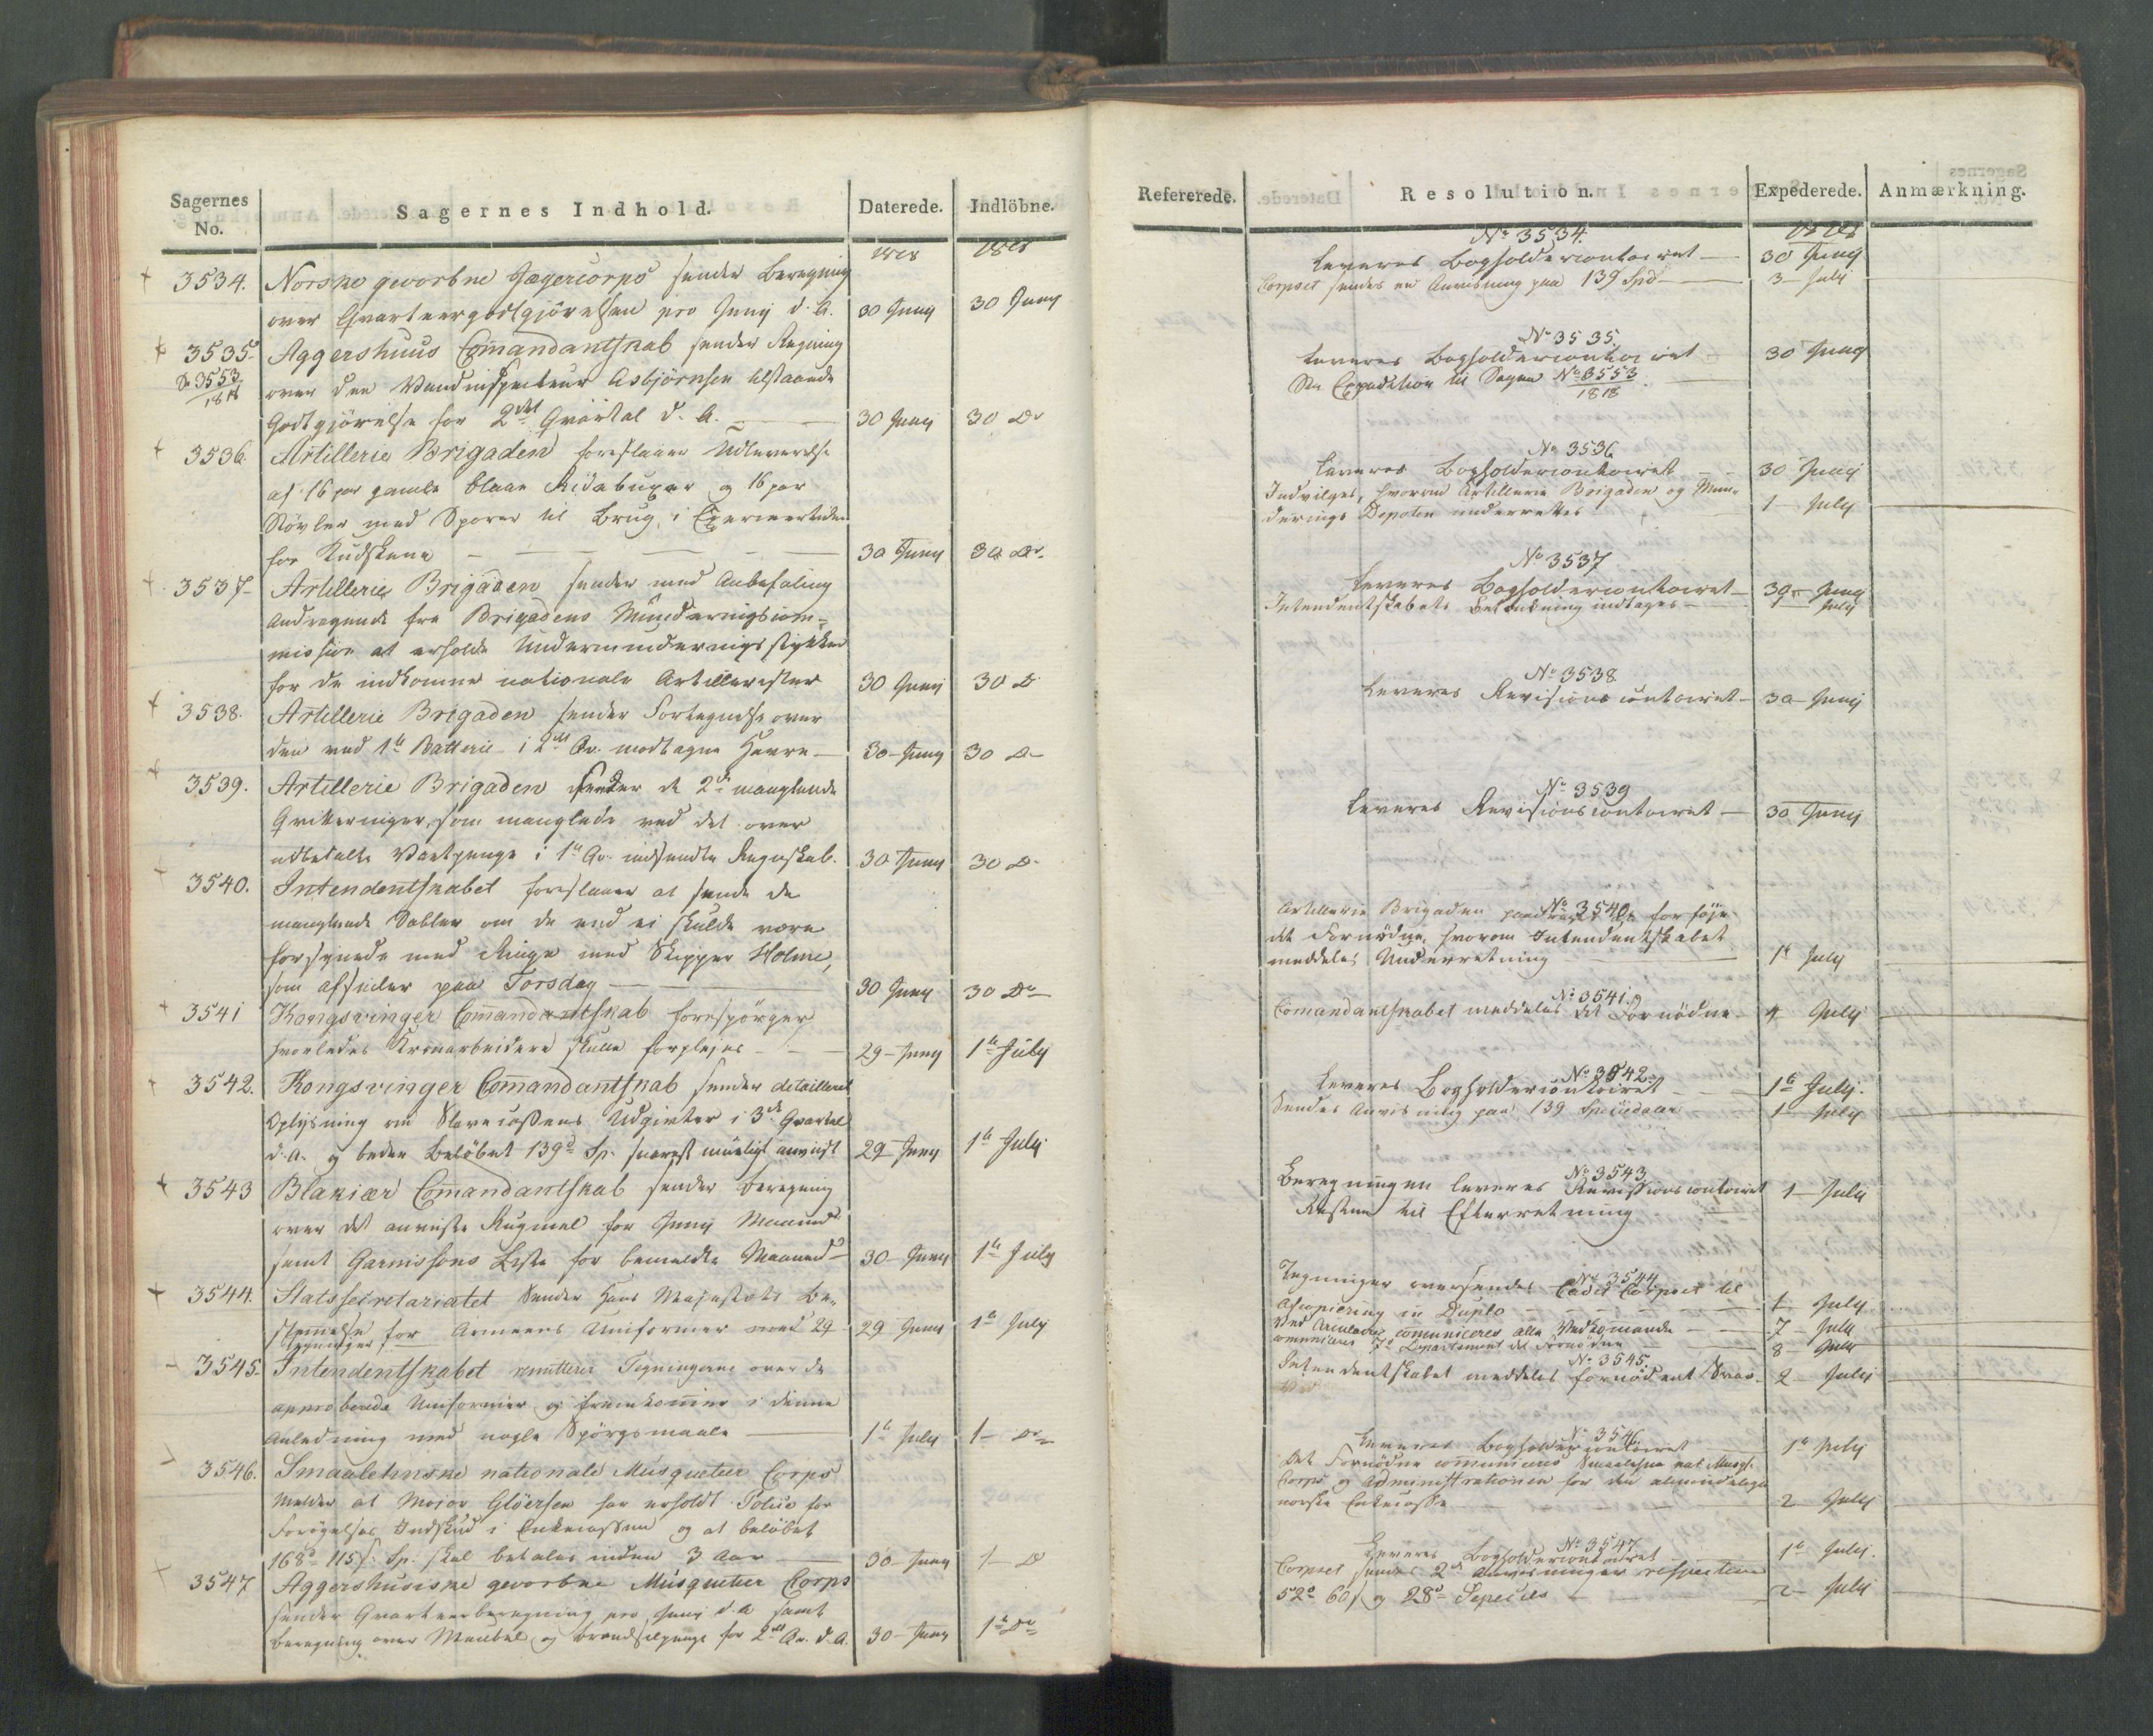 Sagernes No. Sagernes Indhold. Daterede. Indlöbne.
1818 1818
3534. Norske gevorbne Jægercorps sender Beregning
over Qvarteergodtgjörelsen pro Juny d. A. 30 Juny 30 Juny
3535. Aggershuus Comandantskab sender Regning
3553
1818
over den Vandinspecteur Asbjörnsen tilstaaede
Godtgjörelse for 2det Qvartal d. A. 30 Juny 30 Do
3536. Artillerie Brigaden foreslaaer Udleverelse
af 16 par gamle blaae Ridebuxer og 16 par
Stövler med Sporer til Brug i Exerceertiden
for Kudskene 30 Juny 30 Do
3537 Artillerie Brigaden sender med Anbefaling
Andragende fra Brigadens Munderingscom-
mission at erholde Undermunderingsstykker
for de indkomne nationale Artillerister 30 Juny 30 Do
3538. Artillerie Brigaden sender Fortegnelse over
den ved 1te Batterie i 2det Qv. modtagne Havre 30 Juny 30 Do
3539. Artillerie Brigaden sender de 2de manglende
Qvitteringer, som manglede ved det over
udbetalte Vartpenge i 1te Qv. indsendte Regnskab. 30 Juny 30 Do
3540. Intendentskabet foreslaaer at sende de
manglende Sabler om de end ei skulde være
forsynede med Ringe med Skipper Holme,
som afseiler paa Torsdag 30 Juny 30 Do
3541 Kongsvinger Comandantskab forespörger
hvorledes Kronarbeidere skulle forplejes 29 Juny 1te July
3542. Kongsvinger Comandantskab sender detailleret
Oplysning om Slavecassens Udgivter i 3die Qvartal
d. A. og beder Belöbet 139d Sp. snarest mueligt anviist 29 Juny 1te July
3543 Blakiær Comandantskab sender Beregning
over det anviste Rugmel for Juny Maaned
samt Garnisons Liste for bemeldte Maaned 30 Juny 1te July
3544. Statssecretariatet sender Hans Majestæts Be-
stemmelse for Armeens Uniformer med 29 29 Juny 1te July
Tegninger
3545. Intendentskabet remitterer Tegningerne over de
approberede Uniformer og fremkommer i denne
Anledning med nogle Spörgsmaale 1te July 1 Do
3546. Smaalehnske nationale Musqueteer Corps
melder at Major Glöersen har erholdt Police for
Forögelses Indskud i Enkecassen og at belöbet
168d 115s. Sp. skal betales inden 3 Aar 30 Juny 1 Do
3547 Aggershusiske gevorbne Musqueteer Corps
sender Qvarteerberegning pro Juny d. A. samt
Beregning over Meubel og brændselpenge for 2det Qv. d. A. 30 Juny 1te Do
Refererede. Resolution. Expederede. Anmærkning.
No 3534. 1818
Leveres Bogholdercontoiret 30 Juny
Corpset sendes en Anvisning paa 139 Spd 3 July
No 3535.
Leveres Bogholdercontoiret 30 Juny
See Expedition til Sagen No 3553
1818
No 3536
Leveres Bogholdercontoiret 30 Juny
Indvilges, hvorom Artillerie Brigaden og Mun-
derings Depoten underrettes 1 July
No 3537
Leveres Bogholdercontoiret 30 Juny
Intendentskabets Betænkning indtages 1 July
No 3538
Leveres Revisionscontoiret 30 Juny
No 3539
Leveres Revisionscontoiret 30 Juny
No 3540.
Artillerie Brigaden at forföje
det Fornödne, hvorom Intendentskabet
meddeles Underretning 1te July
No 3541.
Comandantskabet meddeles det Fornödne 4 July
No 3542.
Leveres Bogholdercontoiret 1te July.
Sendes Anvisning paa 139 Speciedaler 1 July
No 3543.
Beregningen leveres Revisionscontoiret 1 July
Resten til Efterretning
No 3544
Tegninger oversendes Cadet Corpset til
Afcopiering in Duplo 1 July
Ved Circulaire comuniceres alle Vedkommende 7 July
comuniceres 7de Departement det Fornödne 8 July
No 3545.
Intendentskabet meddeles fornödent Svar. 2 July
No 3546.
Leveres Bogholdercontoiret 1te July
Det Fornödne comuniceres Smaalehnske nat. Musq.
Corps og Administrationen for den almindelige
norske Enkecasse 2 July
No 3547
Leveres Bogholdercontoiret 1te July.
Corpset sendes 2de Anvisninger respective
52d 60s og 28d Species 2 July